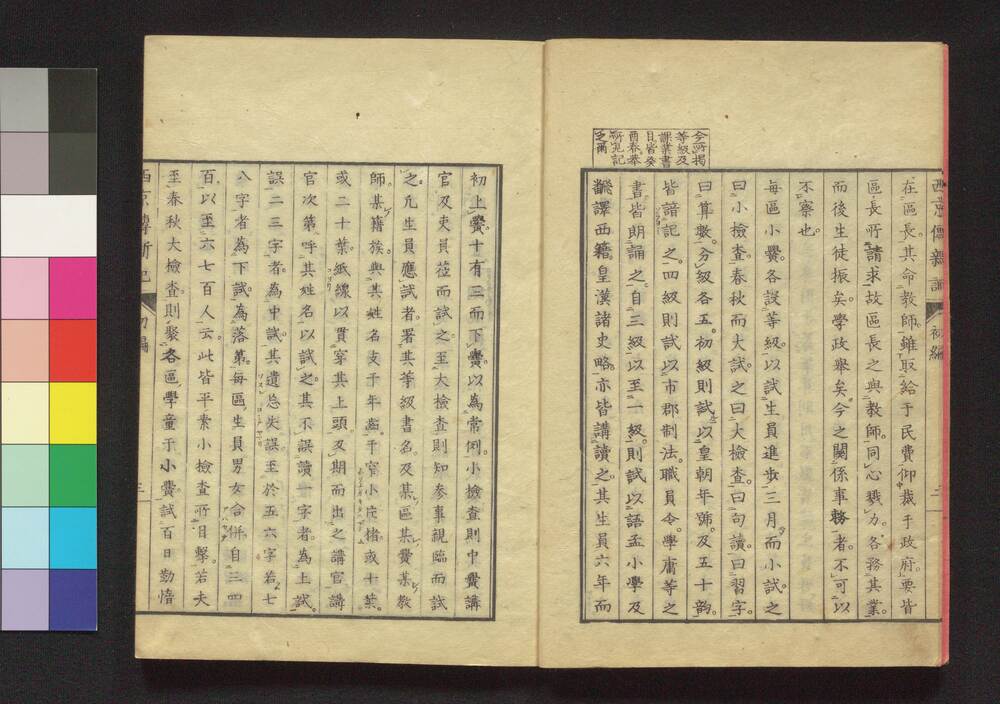 在區長。其命教師。雖取給于民費仰裁于政府。要皆
區長所請求。故區長之與教師。同心戮力。各務其業。
而後生徒振矣。學政舉矣。今之關係事務者。不可以
不察也。
每區小黌。各設等級。以試生員進步。三月而小試之
曰小檢查。春秋而大試之曰大檢查。曰句讀。曰習字。
曰算數。分級各五。初級則試以皇朝年號。及五十韵。
皆諳記之。四級則試以市郡制法。職員令。學庸等之
書。皆朗誦之。自三級以至一級。則試以語孟小學及
飜譯西籍皇漢諸史略。亦皆講讀之。其生員六年而
今所掲
等級及
課業書
目皆癸
酉春
所記
初編
初上黌。十有三而下黌。以為常例。小檢查則中黌講
官及吏員莅而試之。至大檢查則知參事親臨而試
之。凡生員應試者署其等級書名。及某區某黌某教
師。某籍族。與其姓名支干年齒。于窄小片楮。或十葉。
或二十葉。紙線以貫穿其上頭。及期而出之講官。講
官次第呼其姓名以試之。其不誤讀一字者。為上試。
誤二三字者。為中試。其遺忘失誤。至於五六字若七
八字者。為下試。為落第。每區生員男女合併自三四
百。以至六七百人云。此皆平素小檢查所目擊。若夫
至春秋大檢查。則聚各區學童于小黌。試百日勤惰
初編
三